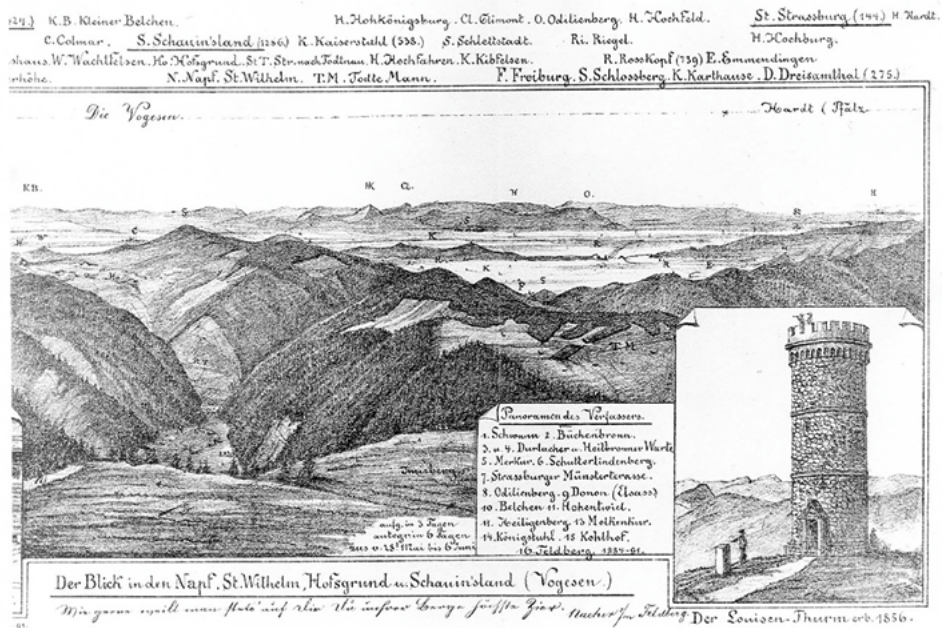 K.B. Kleiner Belchen. H. Hohkönigsburg. Cl. Climont. O. Odilienberg. H. Hochfeld. St. Strassburg (144.) H. Hardt.
C. Colmar. S. Schauin'sland (1286) K. Kaiserstuhl (558.) S. Schlettstadt. Ri. Riegel. H. Hochburg.
W. Wachtfelsen. Ho. Hofsgrund. St T. Str. nach Todtnau. H. Hochfahren. K. Kibfelsen. R. Rosskopf (739) E. Emmendingen
N. Napf. St. Wilhelm. T.M. Todte Mann. F. Freiburg. S. Schlossberg. K. Karthause. D. Dreisamthal (275.)
Die Vogesen. Hardt (Pfalz
K.B. H. O. H
S C K
K S
T M
Panoramen des Verfassers.
1. Schwann 2. Büchenbronn.
3. u. 4. Durlacher u. Heilbronner Warte
5. Merkur. 6. Schutterlindenberg.
7. Strassburger Münsterterasse.
8. Odilienberg. 9 Donon (Elsass)
10. Belchen 11. Hohentwiel.
12. Heiligenberg 13 Molkenkur.
14. Königstuhl. 15 Kohlhof.
16 Feldberg. 1884-91.
aufg. in 3 Tagen
autogr. in 6 Tagen
Der Blick in den Napf, St. Wilhelm, Hofsgrund u. Schauin'sland (Vogesen.)
Wie gerne weilt man stets auf Dir Du unsrer Berge höchste Zier.
Der Louisen-Thurm erb. 1856.